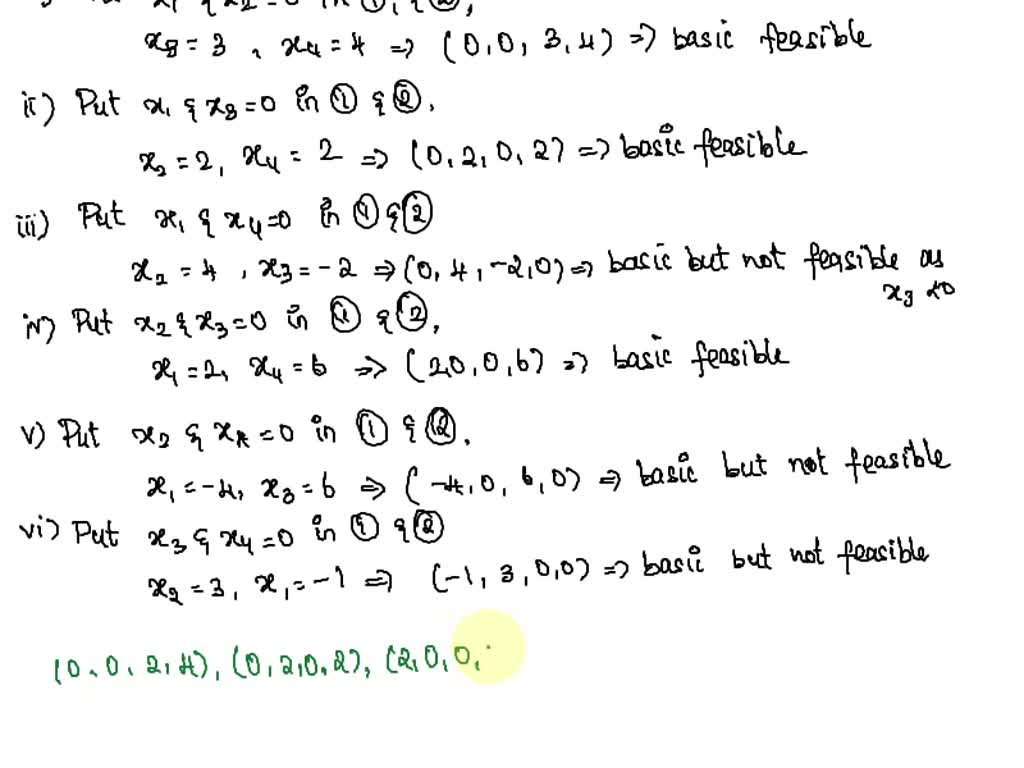 x₁ & x₂ = 0 in ①, & ②,
x₃ = 3, x₄ = 4 ⇒ (0, 0, 3, 4) ⇒ basic feasible
ii) Put x₁ & x₃ = 0 in ① & ②.
x₂ = 2, x₄ = 2 ⇒ (0, 2, 0, 2) ⇒ basic feasible
iii) Put x₁ & x₄ = 0 in ① & ②
x₂ = 4, x₃ = -2 ⇒ (0, 4, -2, 0) ⇒ basic but not feasible as
x₃ < 0
iv) Put x₂ & x₃ = 0 in ① & ②,
x₁ = 2, x₄ = 6 ⇒ (2,0, 0, 6) ⇒ basic feasible
v) Put x₂ & x₄ = 0 in ① & ②.
x₁ = -4, x₃ = 6 ⇒ (-4, 0, 6, 0) ⇒ basic but not feasible
vi) Put x₃ & x₄ = 0 in ① & ②
x₂ = 3, x₁ = -1 ⇒ (-1, 3, 0, 0) ⇒ basic but not feasible
(0, 0, 2, 4), (0, 2, 0, 2), (2, 0, 0,